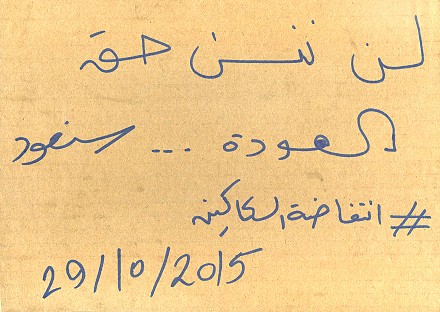 لن ننسى حق
العودة ... سنعود
#انتفاضة السكاكين
29/10/2015